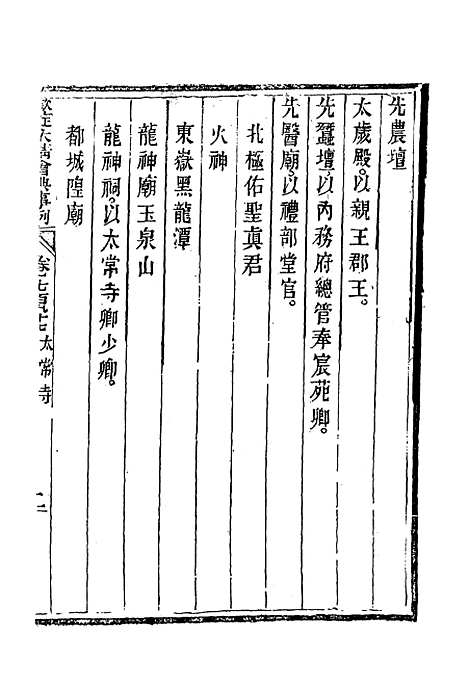 先農壇
太歲殿。以親王郡王。
先蠶壇。以內務府總管奉宸苑卿。
先醫廟。以禮部堂官。
北極佑聖眞君
火神
東嶽黑龍潭
龍神廟玉泉山
龍神祠。以太常寺卿少卿。
都城隍廟
欽定大清會典事例
太常寺